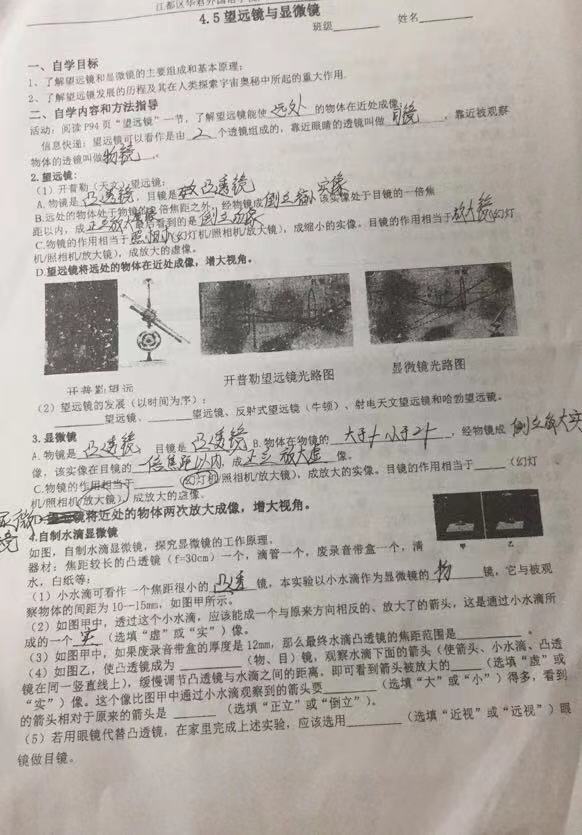 江都区华君外国语学校
4.5 望远镜与显微镜
班级 姓名
一、自学目标
1、了解望远镜和显微镜的主要组成和基本原理；
2、了解望远镜发展的历程及其在人类探索宇宙奥秘中所起的重大作用.
二、自学内容和方法指导
活动：阅读P94页“望远镜”一节，了解望远镜能使 远处 的物体在近处成像；
信息快递：望远镜可以看作是由 2 个透镜组成的，靠近眼睛的透镜叫做 目镜 ，靠近被观察
物体的透镜叫做 物镜 。
2.望远镜：
（1）开普勒（天文）望远镜：
A.物镜是 凸透镜 ，目镜是 凸透镜
B.远处的物体处于物镜的 倍焦距之外，经物镜成 倒立缩小实像 该实像处于目镜的一倍焦
距以内，成 正立放大虚像 最后看到的是 倒立
C.物镜的作用相当于 照相机 (幻灯机/照相机/放大镜)，成缩小的实像。目镜的作用相当于 放大镜 (幻灯
机/照相机/放大镜)，成放大的虚像。
D.望远镜将远处的物体在近处成像，增大视角。
开普勒望远
开普勒望远镜光路图
显微镜光路图
（2）望远镜的发展（以时间为序）：
望远镜、 望远镜、反射式望远镜（牛顿）、射电天文望远镜和哈勃望远镜。
3.显微镜
A.物镜是 凸透镜 目镜是 凸透镜 B.物体在物镜的 大于f小于2f ，经物镜成 倒立放大实
像，该实像在目镜的 一倍焦距以内，成 正立放大虚 像。
C.物镜的作用相当于 (幻灯机/照相机/放大镜)，成放大的实像。目镜的作用相当于 (幻灯
机/照相机/放大镜)，成放大的虚像。
显微镜
D. 镜将近处的物体两次放大成像，增大视角。
4.自制水滴显微镜
如图，自制水滴显微镜，探究显微镜的工作原理。
器材：焦距较长的凸透镜（f=30cm）一个，滴管一个，废录音带盒一个，清
水，白纸等；
甲 乙
（1）小水滴可看作一个焦距很小的 凸透 镜，本实验以小水滴作为显微镜的 物 镜，它与被观
察物体的间距为10--15mm，如图甲所示。
（2）如图甲中，透过这个小水滴，应该能成一个与原来方向相反的、放大了的箭头，这是通过小水滴所
成的一个 实 （选填“虚”或“实”）像。
（3）如图甲中，如果废录音带盒的厚度是12mm，那么最终水滴凸透镜的焦距范围是 。
（4）如图乙，使凸透镜成为 （物、目）镜，观察水滴下面的箭头（使箭头、小水滴、凸透
镜在同一竖直线上），缓慢调节凸透镜与水滴之间的距离，即可看到箭头被放大的 （选填“虚”或
“实”）像。这个像比图甲中通过小水滴观察到的箭头要 （选填“大”或“小”）得多，看到
的箭头相对于原来的箭头是 （选填“正立”或“倒立”）。
（5）若用眼镜代替凸透镜，在家里完成上述实验，应该选用 （选填“近视”或“远视”）眼
镜做目镜。